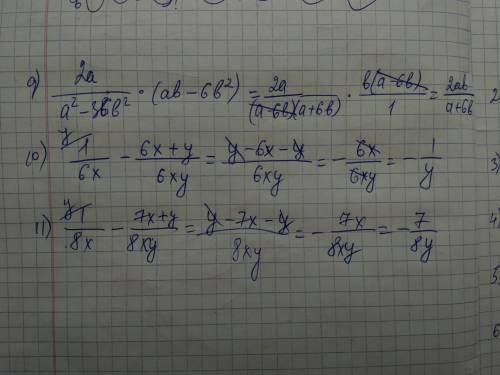 9) 2a/(a² - 36b²) · (ab - 6b²) = 2a/((a-6b)(a+6b)) · b(a-6b)/1 = 2ab/(a+6b) 2
10) y/ 1/6x - (6x+y)/6xy = (y-6x-y)/6xy = - 6x/6xy = - 1/y 3)
11) y/ 1/8x - (7x+y)/8xy = (y-7x-y)/8xy = - 7x/8xy = - 7/8y 4)
5)
6